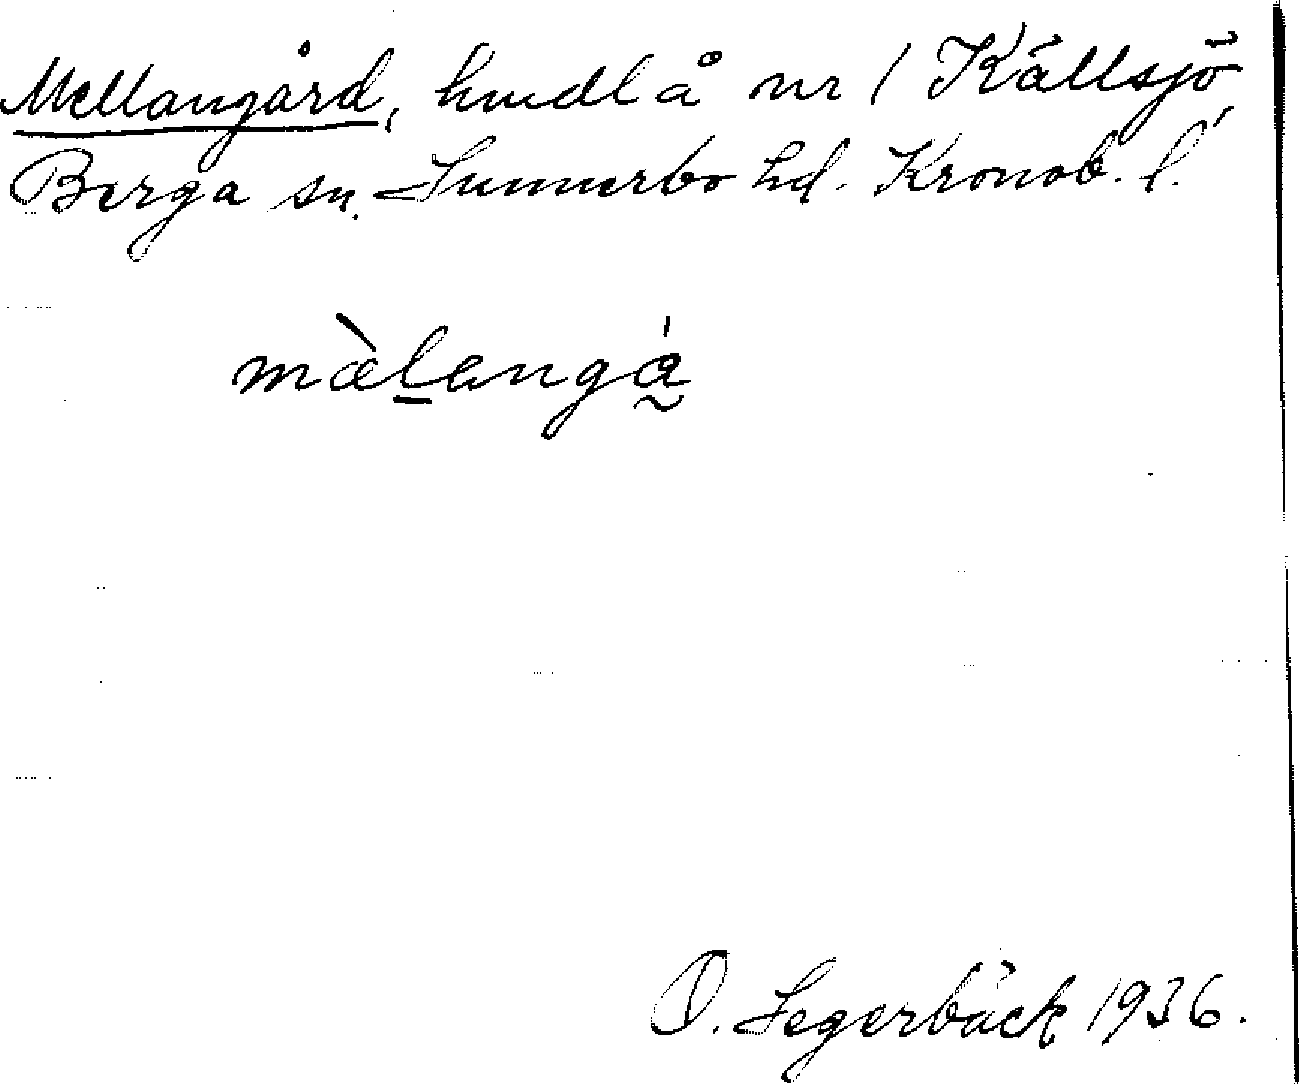 Mellangård, hmdl å nr 1 Källsjö,
Berga sn. Sunnerbo hd. Kronob. l.
mæ̀langá̰
O. Segerbäck 1936.